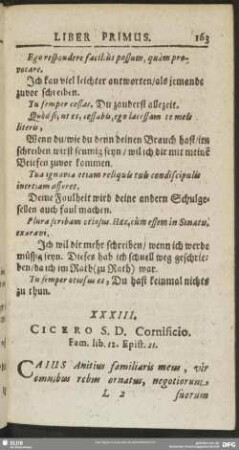 LIBER PRIMUS. 163
Ego respondere faciliùs possum, quàm pro-
vocare.
Ich kan viel leichter antworten/als jemands
zuvor schreiben.
Tu semper cessas, Du zauderst allezeit.
Quòd si, ut es, cessabis, ego lacessam te meis
literis,
Wenn du/wie du denn deinen Brauch hast/im
schreiben wirst seumig seyn/ wil ich dir mit meinē
Briefen zuvor kommen.
Tua ignavia etiam reliquis tuis condiscipulis
inertiam afferet.
Deine Foulheit wird deine andern Schulge-
sellen auch faul machen.
Plura scribam otiosus. Hæc, cùm essem in Senatu,
exaravi.
Ich wil dir mehr schreiben/ wenn ich werde
müssig seyn. Dieses hab ich schnell weg geschrie-
ben/da ich im Rath(zu Rath) war.
Tu semper otiosus es, Du hast keinmal nichts
zu thun.
XXXIII.
CICERO S. D. Cornificio.
Fam. lib. 12. Epist. 21.
CAIUS Anitius familiaris meus, vir
omnibus rebus ornatus, negotiorum
L 2 suorum